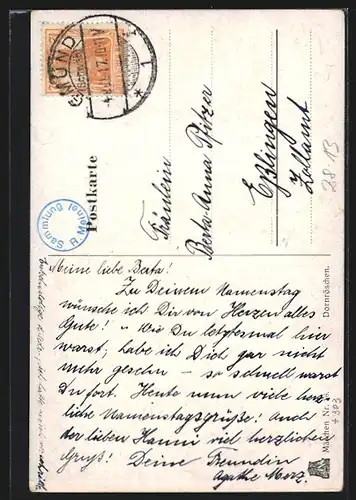 GMÜND
17.10-11V
1
Postkarte
Sammlung
R. Meuel
Fräulein
Berta-Anna Pfitzer
Eßlingen
Zollamt
28.13
Meine liebe Berta!
Zu Deinem Namenstag
wünsche ich Dir von Herzen alles
Gute! - Wie Du letztesmal hier
warst, habe ich Dich gar nicht
mehr gesehen - so schnell warst
Du fort. Heute nun viele herz-
liche Namenstagsgrüße! Auch
der lieben Hanni viel herzlichen
Gruß! Deine Freundin
Agathe Merz.
Märchen Nr.
Dornröschen.